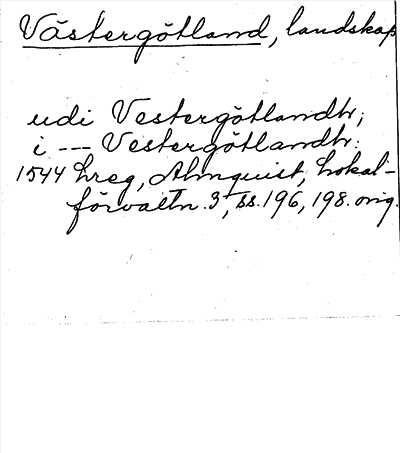 Västergötland, landskap
udi Vestergötlandh,
i --- Vestergötlandh.
1544 hreg, Almquist, Lokal-
förvaltn. 3, ss. 196, 198. orig.